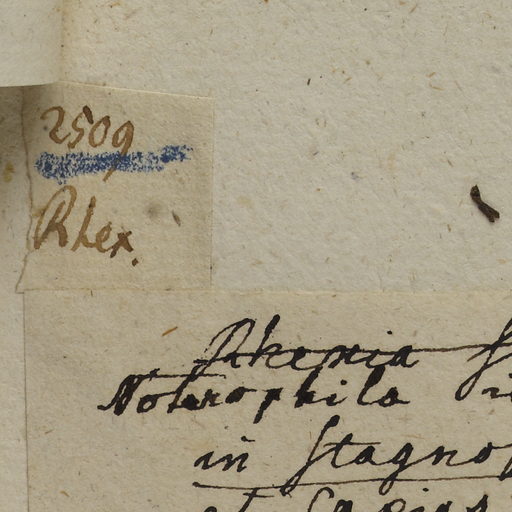 2509
Rhex.
Rhexia
Noterophila
in stagno
et